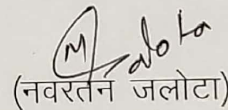 (नवरतन जलोटा)